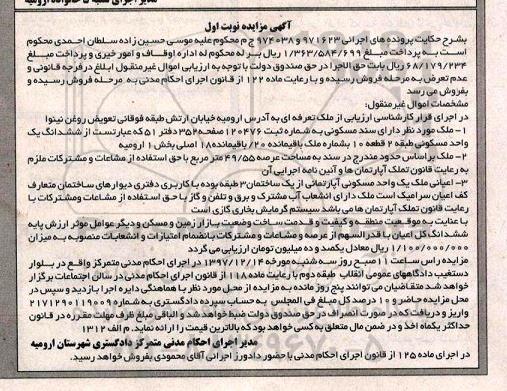 مدیر اجرای شعبه ۵ خانواده ارومیه
آگهی مزایده نوبت اول
بشرح حکایت پرونده های اجرائی ۹۷۱۶۲۳ و ۹۷۴۰۳۸ ج م محکوم علیه موسی حسین زاده سلطان احمدی محکوم
است به پرداخت مبلغ ۱/۳۶۳/۵۸۴/۶۹۹ ریال بر له محکوم له اداره اوقاف و امور خیری و پرداخت مبلغ
۶۸/۱۷۹/۲۳۴ ریال بابت حق الاجرا در حق صندوق دولت با توجه به ارزیابی اموال غیرمنقول ابلاغ در فرجه قانونی و
عدم تعرض به مرحله فروش رسیده و با رعایت ماده ۱۲۲ از قانون اجرای احکام مدنی به مرحله فروش رسیده و
بفروش می رسد
مشخصات اموال غیرمنقول:
در اجرای قرار کارشناسی ارزیابی از ملک تعرفه ای به آدرس ارومیه خیابان ارتش طبقه فوقانی تعویض روغن نینوا
۱- ملک مورد نظر دارای سند مسکونی به شماره ثبت ۱۲۰۴۷۶ صفحه ۳۵۲ دفتر ۵۱ که عبارتست از ششدانگ یک
واحد مسکونی طبقه ۲ قطعه ۱۰ بشماره ملک باقیمانده ۲۰/ باقیمانده ۱۸ اصلی بخش ۱ ارومیه
۲- ملک بر اساس حدود مندرج در سند به مساحت عرصه ۴۹/۵۵ متر مربع با حق استفاده از مشاعات و مشترکات ملزم
به رعایت قانون تملک آپارتمان ها و آئین نامه اجرایی آن
۳- اعیانی ملک یک واحد مسکونی آپارتمانی از یک ساختمان ۳ طبقه بوده با کاربری دفتری دیوارهای ساختمان متعارف
کف اعیان سرامیک است ملک دارای انشعاب آب مشترک و برق و تلفن و گاز با حق استفاده از مشاعات و مشترکات با
رعایت قانون تملک آپارتمان ها می باشد سیستم گرمایش بخاری گازی است
با عنایت به موقعیت منطقه و کیفیت و قدمت ساخت وضعیت بازار زمین و مسکن و دیگر عوامل موثر ارزش پایه
ششدانگ کل اعیان با قدرالسهم از عرصه و مشاعات و مشترکات بانضمام امتیازات و انشعابات منصوبه به میزان
۱/۱۰۰/۰۰۰/۰۰۰ ریال معادل یکصد و ده میلیون تومان ارزیابی می گردد
مزایده راس ساعت ۱۱ صبح روز سه شنبه مورخه ۱۳۹۷/۱۲/۱۴ در اجرای احکام مدنی متمرکز واقع در بلوار
دستغیب دادگاههای عمومی انقلاب طبقه دوم با رعایت ماده ۱۱۸ از قانون اجرای احکام مدنی در سالن اجتماعات برگزار
خواهد شد متقاضیان می توانند پنج روز مانده به مزایده از محل مورد نظر با هماهنگی دایره اجرا بازدید و سپس در
محل مزایده حاضر و ۱۰ درصد کل مبلغ فی المجلس به حساب سپرده دادگستری به شماره ۲۱۷۱۲۹۰۱۱۹۰۰۹
واریز و دریافت که در صورت انصراف در حق صندوق دولت ضبط خواهد شد و الباقی مبلغ ظرف مهلت مقرره در قانون
حداکثر یکماه اخذ و در ضمن مال متعلق به کسی خواهد بود که بالاترین قیمت را ارائه نماید. م الف ۱۳۱۲
مدیر اجرای احکام مدنی متمرکز دادگستری شهرستان ارومیه
در اجرای ماده ۱۲۵ از قانون اجرای احکام مدنی با حضور دادورز اجرائی آقای محمودی بفروش خواهد رسید.